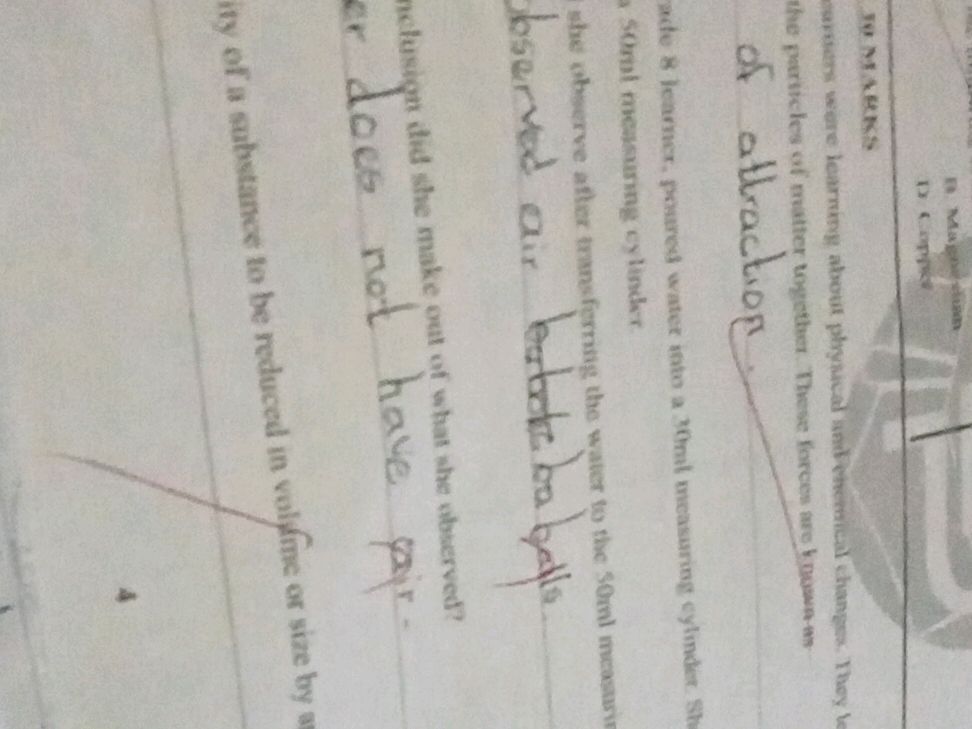 B. Magnesium
D. Copper
10 MARKS
earners were learning about physical and chemical changes. They le
the particles of matter together. These forces are known as
of attraction.
ade 8 learner, poured water into a 30ml measuring cylinder. Sh
a 50ml measuring cylinder
she observe after transferring the water to the 50ml measurin
observed air balls
nclusion did she make out of what she observed?
er does not have air.
ity of a substance to be reduced in volume or size by a
4